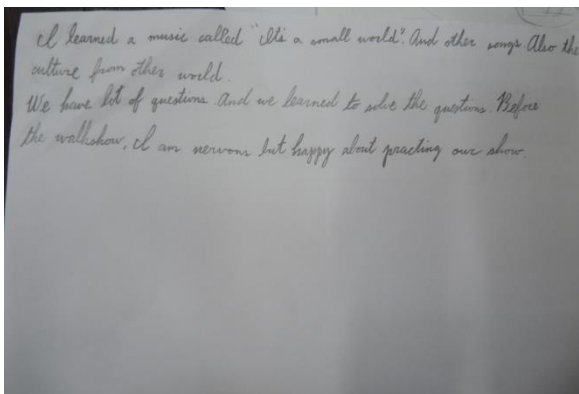 I learned a music called "It's a small world". And other songs. Also the
culture from other world.
We have lot of questions. And we learned to solve the questions. Before
the walkshow, I am nervous but happy about practing our show.